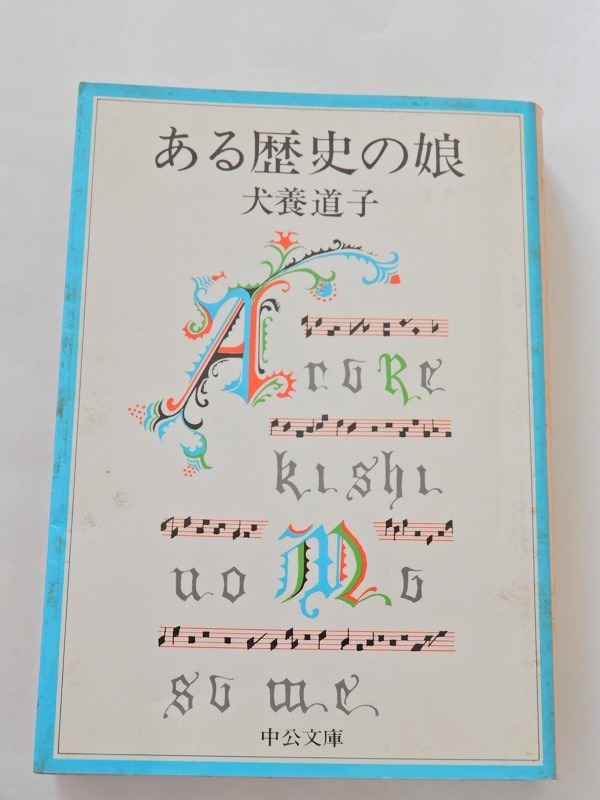 ある歴史の娘
犬養道子
Aru Re
kishi
no Mu
sume
中公文庫